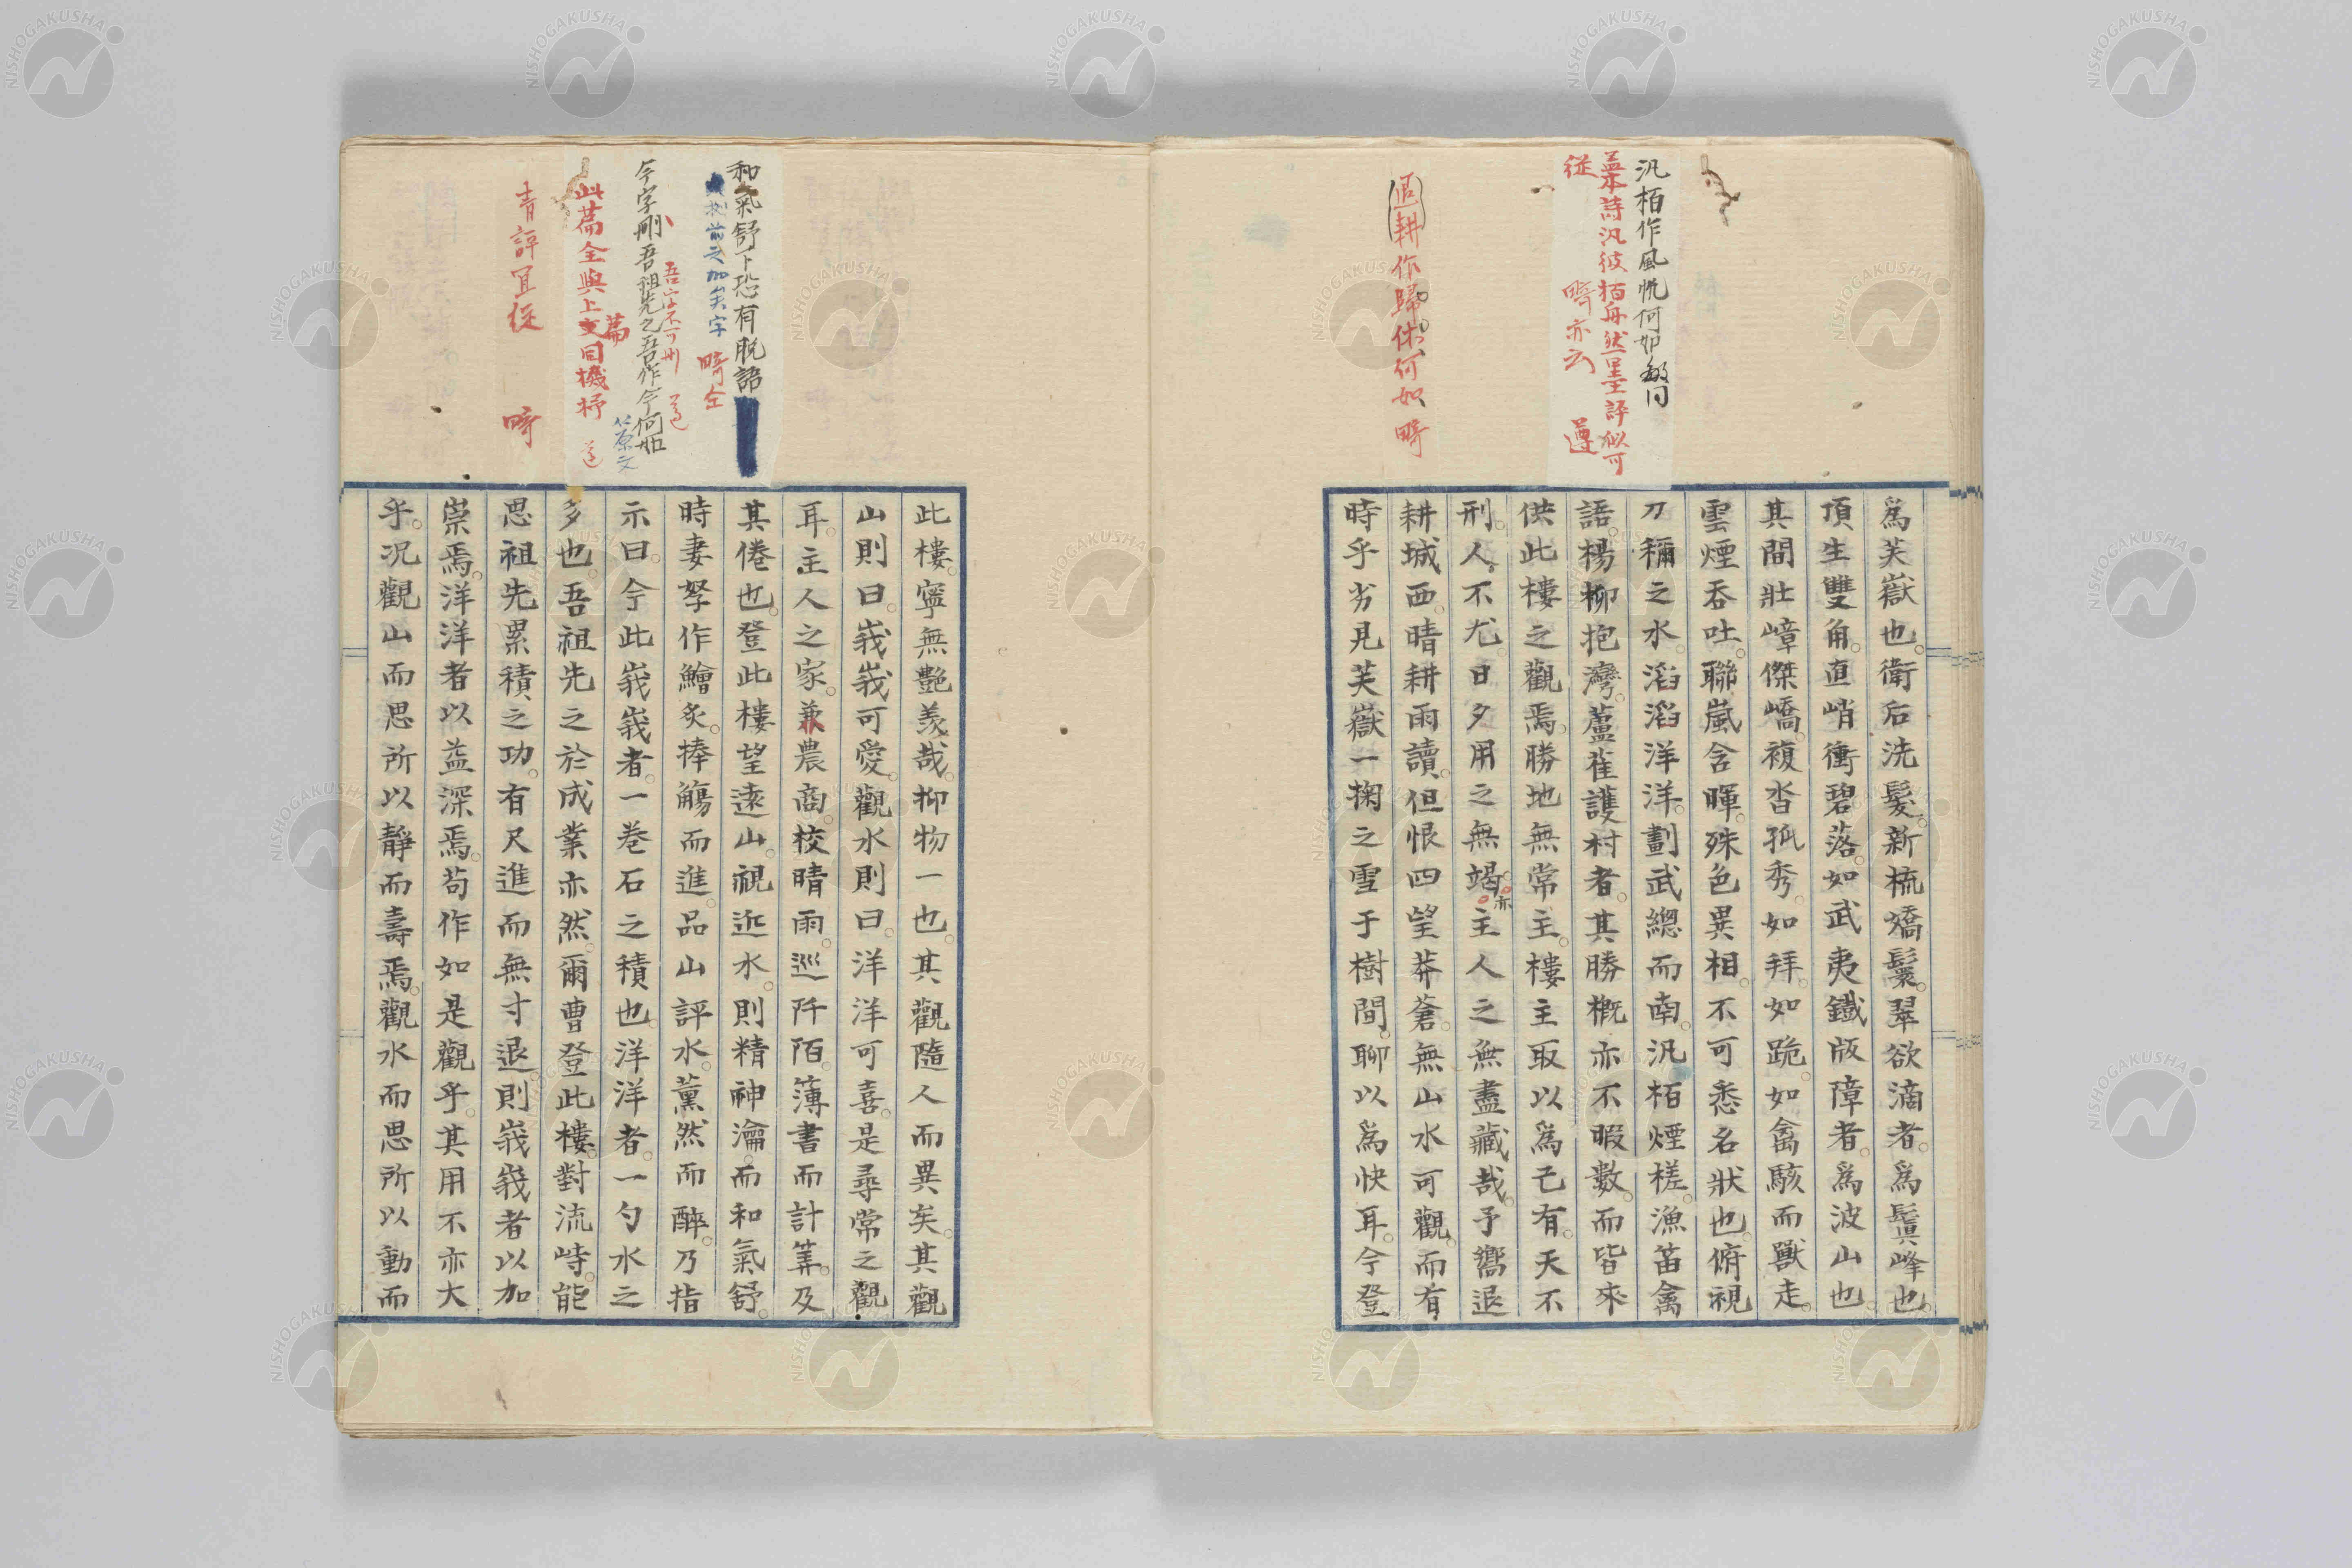 汎栢作風帆何如敏同
蓋本詩汎彼栢舟然墨評似可
從　疇亦云　遵
退耕作歸休何如　疇
爲芙嶽也。衛后洗髮。新梳矯鬟。翠欲滴者。爲鬒峰也
頂生雙角。直峭衝碧落。如武夷鐵版障者。爲波山也
其間壯嶂傑嶠。複沓孤秀。如拜。如跪。如禽駭而獸走。
雲煙呑吐。聯嵐含暉。殊色異相。不可悉名狀也。俯視
刀禰之水。滔滔洋洋。劃武總而南。汎栢煙槎。漁笛禽
語。楊柳抱灣。蘆葦護村者。其勝概亦不暇數。而皆來
供此樓之觀焉。勝地無常主。樓主取以爲己有。天不
刑人。不尤。日夕用之無竭。亦主人之無盡藏哉。予嚮退
耕城西。晴耕雨讀。但恨四望莽蒼。無山水可觀。而有
時乎劣見芙嶽一掬之雪于樹間。聊以爲快耳。今登
和氣舒下恐有脫語
前之加矣字　疇仝
吾字不可刪　遵
今字刪吾祖先之吾作今何如
原文
篇
此篇全與上文同機杼　遵
青評宜從　疇
此樓。寧無艷羨哉。抑物一也。其觀隨人而異矣。其觀
山則曰。峩峩可愛。觀水則曰。洋洋可喜。是尋常之觀
耳。主人之家。兼農商。校晴雨。巡阡陌。簿書而計筭。及
其倦也。登此樓望遠山。視近水。則精神瀹。而和氣舒。
時妻孥作鱠炙。捧觴而進。品山評水。薰然而醉。乃指
示曰。今此峩峩者。一巻石之積也。洋洋者。一勺水之
多也。吾祖先之於成業亦然。爾曹登此樓。對流峙。能
思祖先累積之功。有尺進而無寸退。則峩峩者以加
崇焉。洋洋者以益深焉。苟作如是觀乎。其用不亦大
乎。况觀山而思所以靜而壽焉。觀水而思所以動而